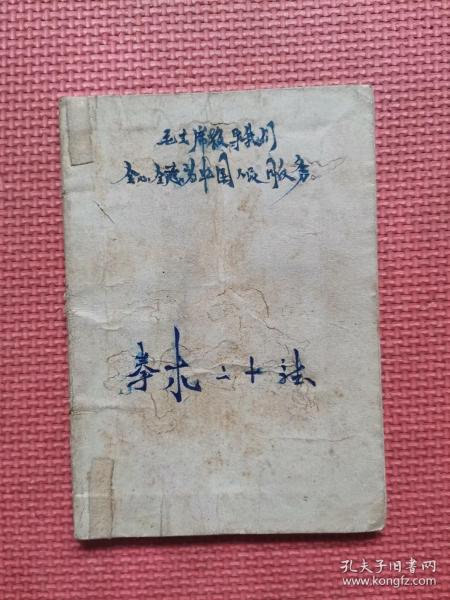 毛主席教导我们
全心全意为中国人民服务
拳术二十法
孔夫子旧书网
www.kongfz.com